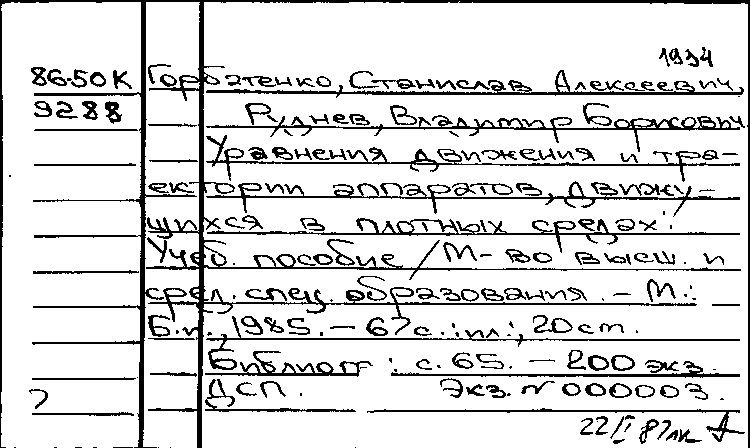 1994
86-50К Горбатенко, Станислав Алексеевич,
9288 Руднев, Владимир Борисович
Уравнения движения и тра-
ектории аппаратов, движу-
щихся в плотных средах:
Учеб. пособие / М-во высш. и
сред. спец. образования. - М.:
Б.и., 1985. - 67 с.: ил.; 20 см.
Библиогр: с. 65. - 200 экз.
ДСП. Экз. N 000003.
22/I 87